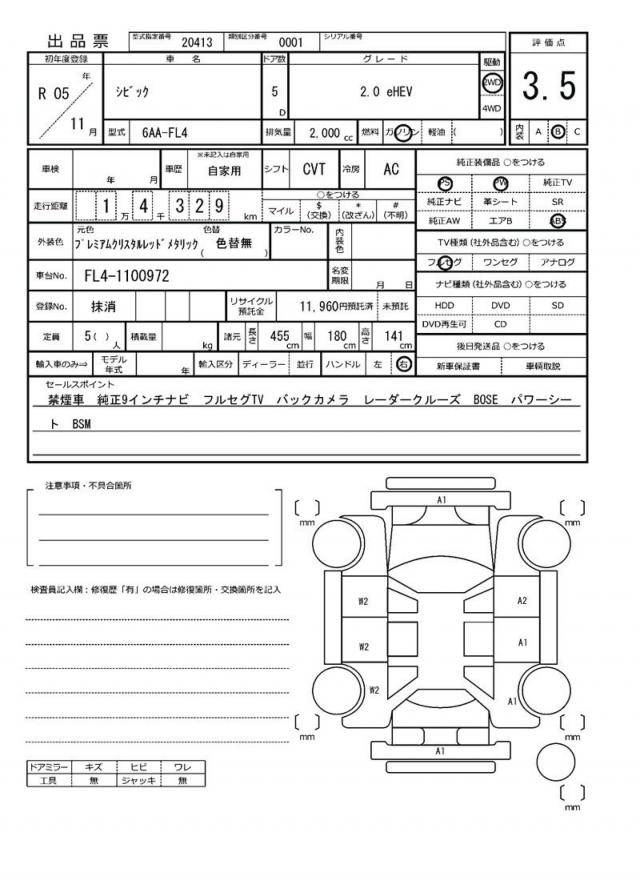 出品票 型式指定番号 20413 類別区分番号 0001 シリアル番号
初年度登録 車名 ドア数 グレード 駆動 評価点
R 05 年 シビック 5 D 2.0 eHEV 2WD 3.5
4WD
11 月 型式 6AA-FL4 排気量 2,000 cc 燃料 ガソリン 軽油 ( ) 内装 A B C
車検 年 月 車歴 ※未記入は自家用 自家用 シフト CVT 冷房 AC 純正装備品 ○をつける
PS PW 純正TV
走行距離 1 万 4 千 3 2 9 km ○をつける 純正ナビ 革シート SR
マイル $ (交換) * (改ざん) # (不明) 純正AW エアB ABS
外装色 元色 プレミアムクリスタルレッドメタリック 色替 ( 色替無 ) カラーNo. 内装色 TV種類 (社外品含む) ○をつける
フルセグ ワンセグ アナログ
車台No. FL4-1100972 名変期限 月 日 ナビ種類 (社外品含む) ○をつける
登録No. 抹消 リサイクル預託金 11,960円預託済 未預託 HDD DVD SD
DVD再生可 CD
定員 5 ( ) 人 積載量 kg 諸元 長さ 455 cm 幅 180 cm 高さ 141 cm 後日発送品 ○をつける
輸入車のみ⇒ モデル年式 年 輸入区分 ディーラー 並行 ハンドル 左 右 新車保証書 車輌取説
セールスポイント
禁煙車 純正9インチナビ フルセグTV バックカメラ レーダークルーズ BOSE パワーシー
ト BSM
注意事項・不具合箇所
A1
mm mm
検査員記入欄:修復歴「有」の場合は修復箇所・交換箇所を記入
W2 A2
W2 A1
W2 A1
mm mm
A1
ドアミラー キズ ヒビ ワレ
工具 無 ジャッキ 無
mm